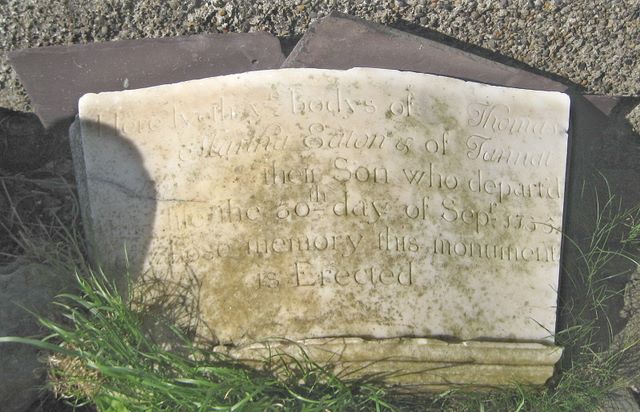 Here lyeth ye bodys of Thomas
Martha Eaton's of Tannat
their Son who departd
the 30th day of Sept
whose memory this monument
is Erected